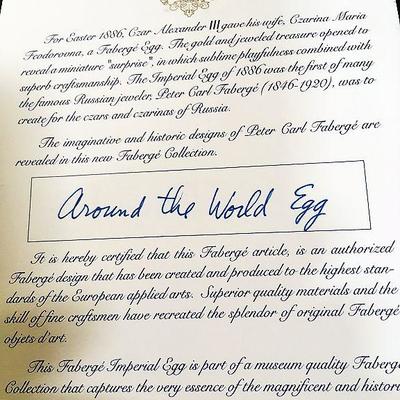 For Easter 1886, Czar Alexander III gave his wife, Czarina Maria
Teodorovna, a Fabergé Egg. The gold and jeweled treasure opened to
reveal a miniature "surprise", in which sublime playfulness combined with
superb craftsmanship. The Imperial Egg of 1886 was the first of many
the famous Russian jeweler, Peter Carl Fabergé (1846-1920), was to
create for the czars and czarinas of Russia.
The imaginative and historic designs of Peter Carl Fabergé are
revealed in this new Fabergé Collection.
Around the World Egg
It is hereby certified that this Fabergé article, is an authorized
Fabergé design that has been created and produced to the highest stan-
dards of the European applied arts. Superior quality materials and the
skill of fine craftsmen have recreated the splendor of original Fabergé
objets d'art.
This Fabergé Imperial Egg is part of a museum quality Faberg
Collection that captures the very essence of the magnificent and histori